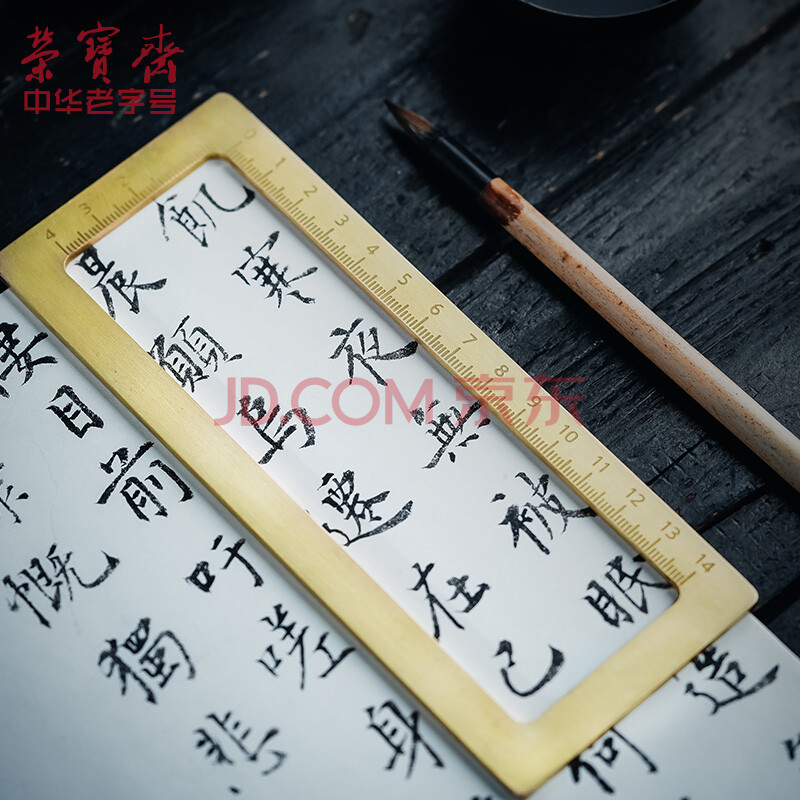 榮寶齋
中华老字号
JD.COM 京东
4 3 2
0 1 2 3 4 5 6 7 8 9 10 11 12 13 14
飢寒夜無被眠造
晨願烏遷在己何
目前吁嗟身
慨獨悲